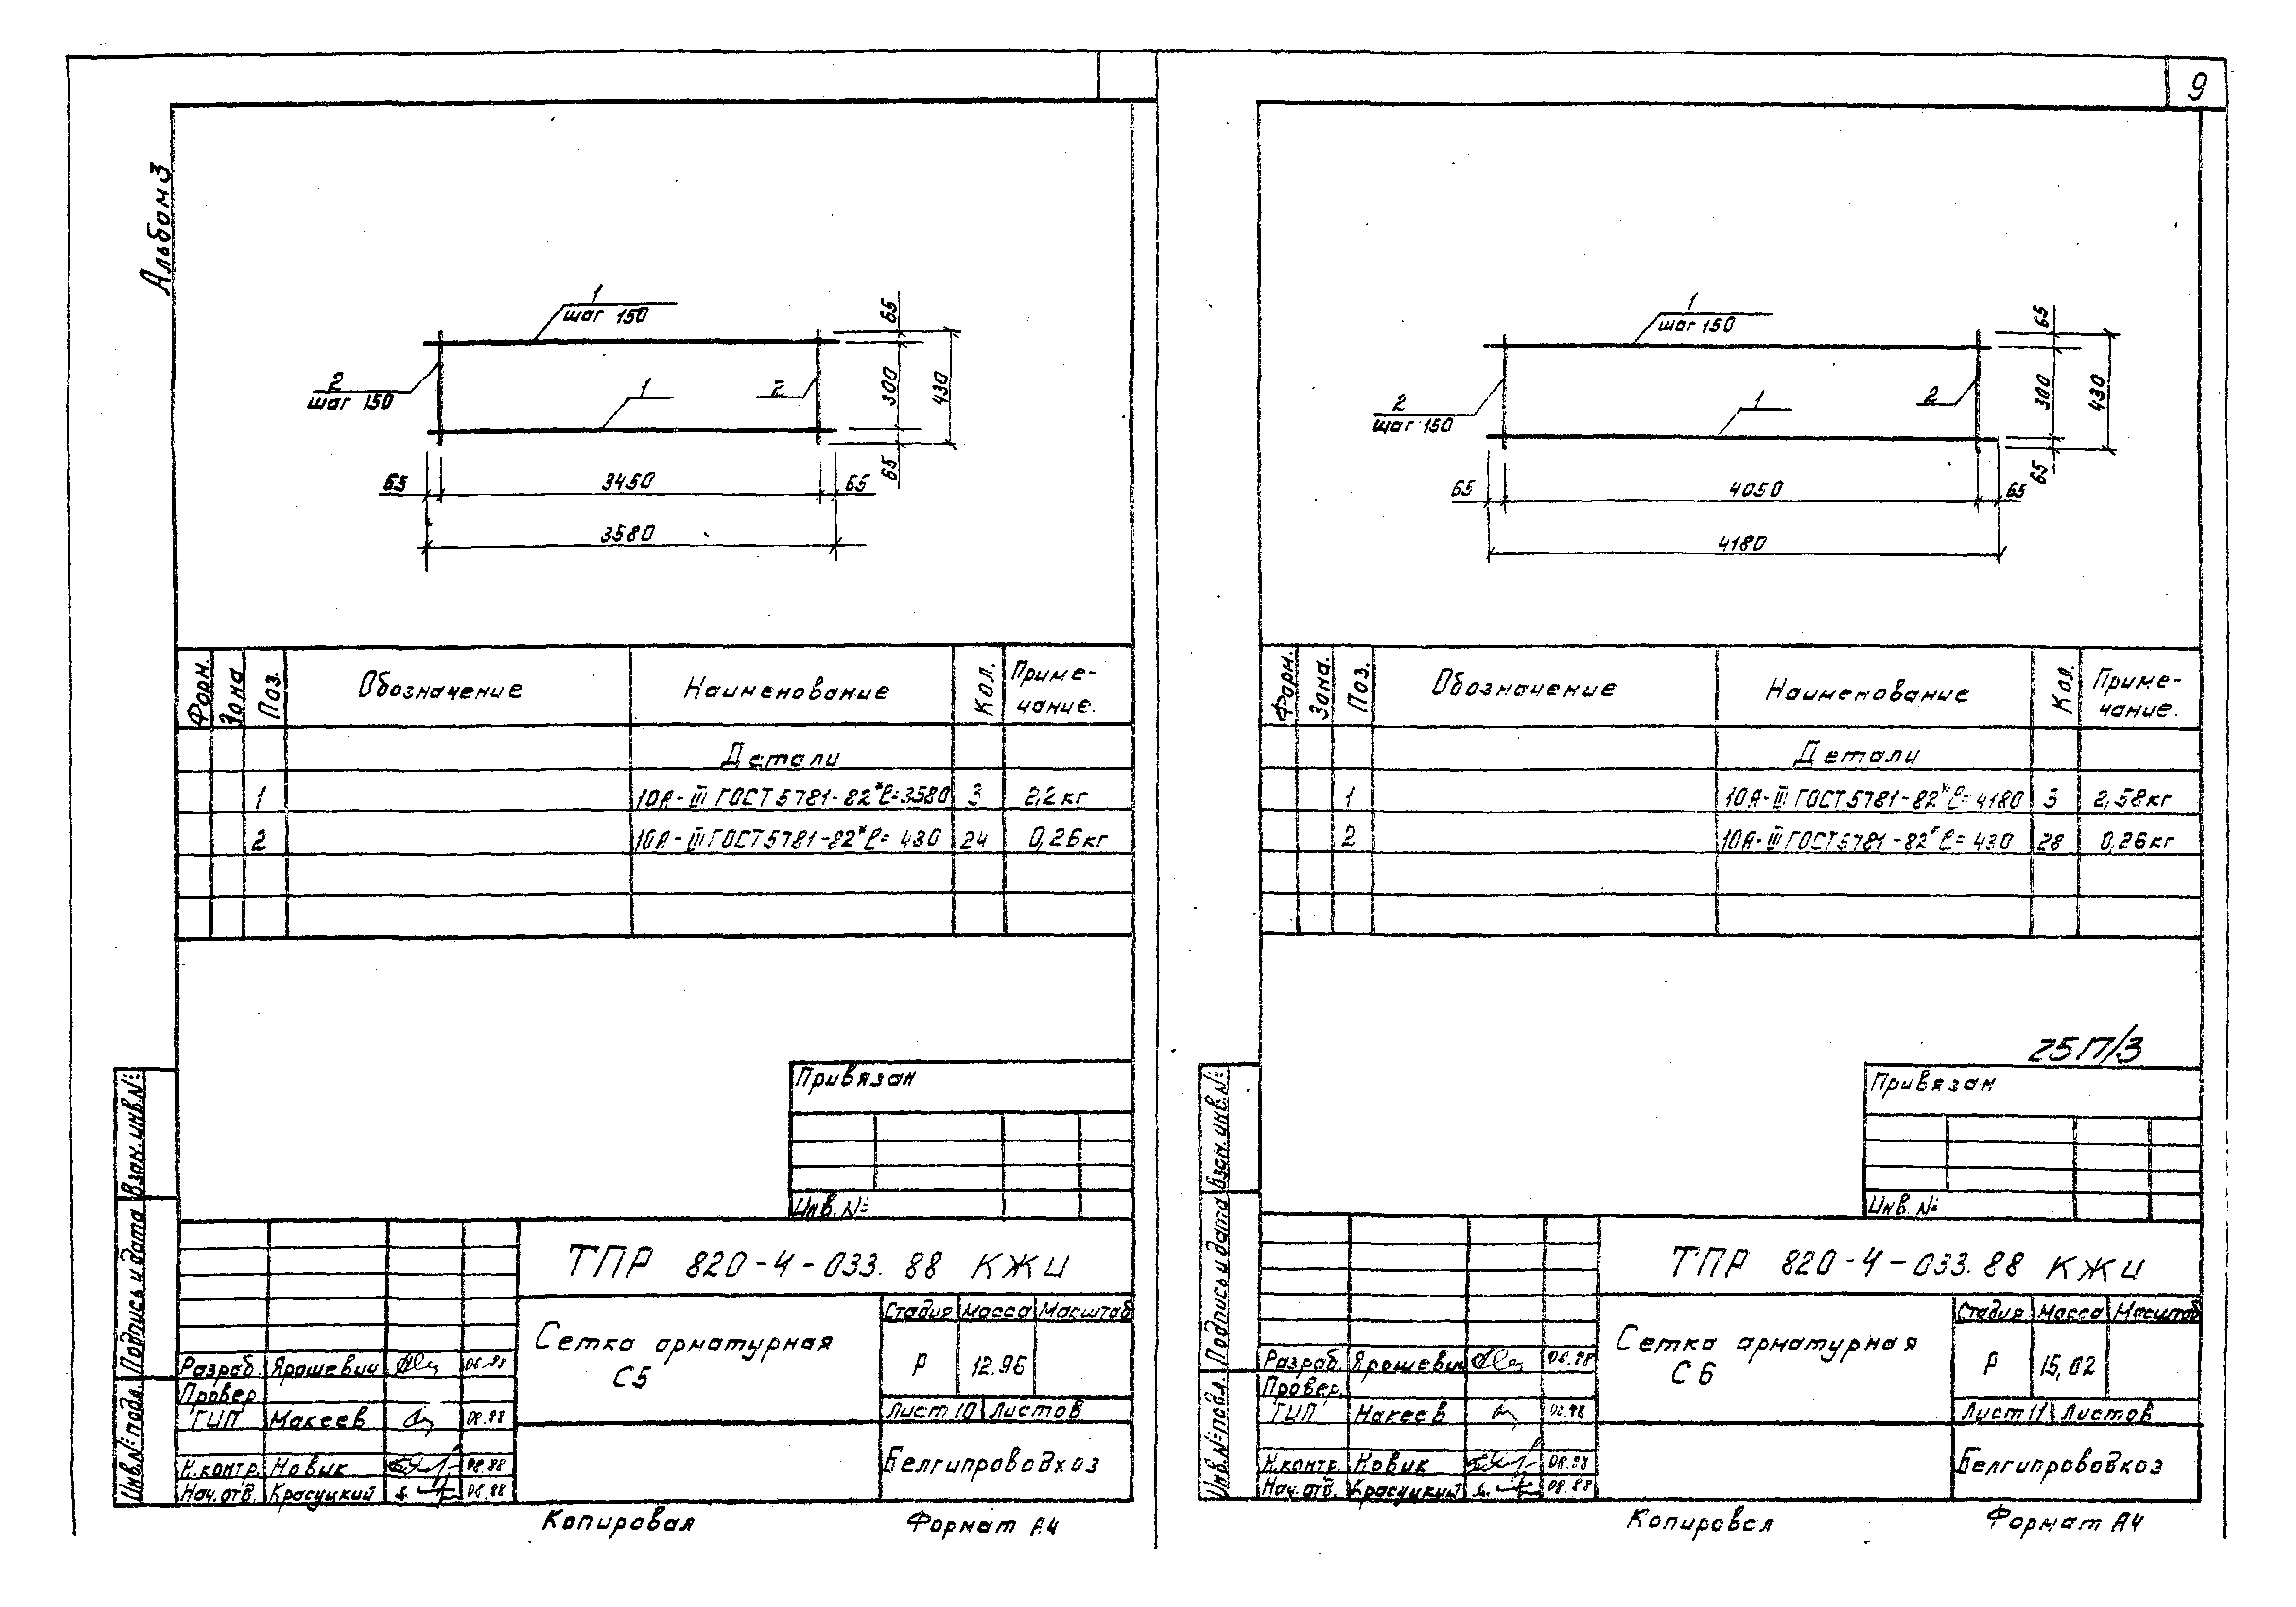 9
Альбом 3
1
шаг 150
2
шаг 150
1
2
65
300
430
65
65
3450
65
3580
Форм.
Зона
Поз.
Обозначение
Наименование
Кол.
Приме-
чание.
Детали
1
10А-III ГОСТ 5781-82* ℓ=3580
3
2,2 кг
2
10А-III ГОСТ 5781-82* ℓ= 430
24
0,26 кг
Привязан
Инв. №
ТПР 820-4-033. 88 КЖИ
Сетка арматурная
С5
Стадия
Масса
Масштаб
Р
12.96
Лист 10
Листов
Белгипроводхоз
Разраб.
Ярошевич
06.88
Провер
ГИП
Макеев
08.88
Н.контр.
Новик
08.88
Нач.отд.
Красуцкий
08.88
Взам. инв. №
Подпись и дата
Инв. № подл.
Копировал
Формат А4
1
шаг 150
2
шаг 150
1
2
65
300
430
65
65
4050
65
4180
Форм.
Зона.
Поз.
Обозначение
Наименование
Кол.
Приме-
чание.
Детали
1
10А-III ГОСТ 5781-82* ℓ= 4180
3
2,58 кг
2
10А-III ГОСТ 5781-82* ℓ= 430
28
0,26 кг
25П/3
Привязан
Инв. №
ТПР 820-4-033.88 КЖИ
Сетка арматурная
С6
Стадия
Масса
Масштаб
Р
15,02
Лист 11
Листов
Белгипроводхоз
Разраб.
Ярошевич
06.88
Провер.
ГИП
Макеев
08.88
Н.контр.
Новик
08.88
Нач.отд.
Красуцкий
08.88
Взам. инв. №
Подпись и дата
Инв. № подл.
Копировал
Формат А4